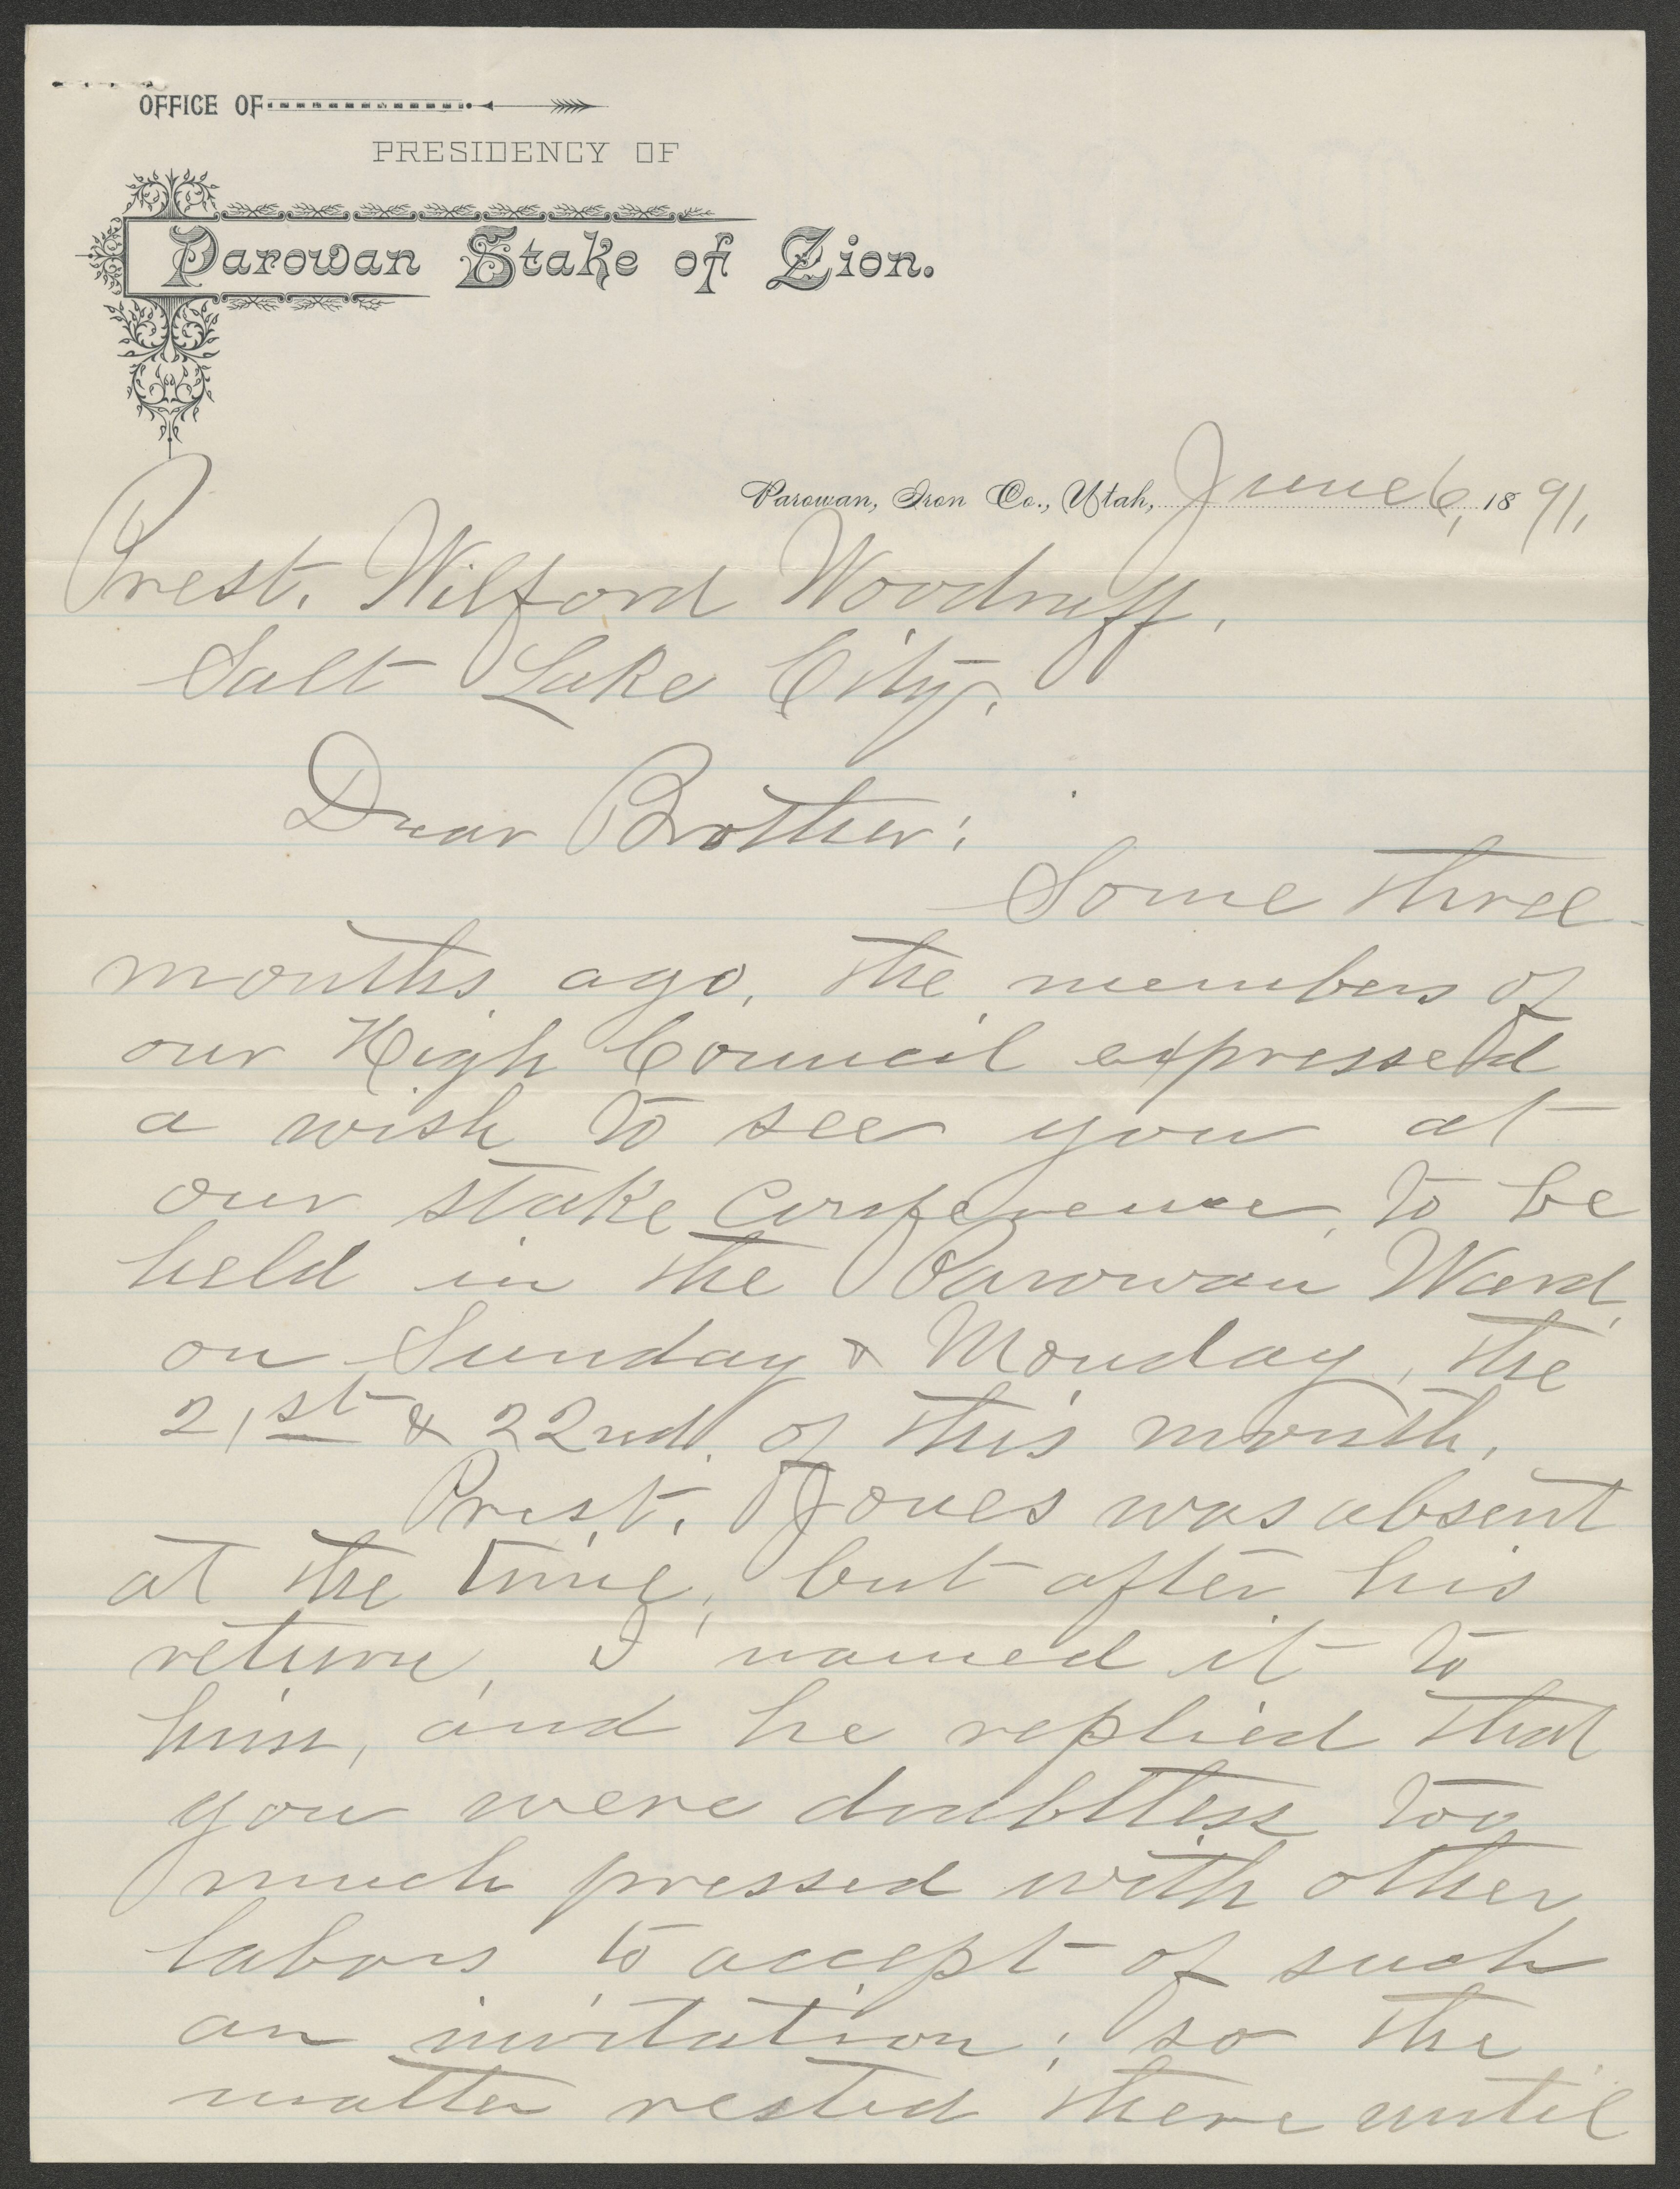 OFFICE OF
PRESIDENCY OF
Parowan Stake of Zion.
Parowan, Iron Co., Utah, June 6, 1891,
Prest. Wilford Woodruff,
Salt Lake City,
Dear Brother:
Some three
months ago, the members of
our High Council expressed
a wish to see you at
our stake conference, to be
held in the Parowan Ward,
on Sunday & Monday, the
21st & 22nd. of this month.
Prest. Jones was absent
at the time; but after his
return, I named it to
him, and he replied that
you were doubtless too
much pressed with other
labors to accept of such
an invitation; so the
matter rested there until